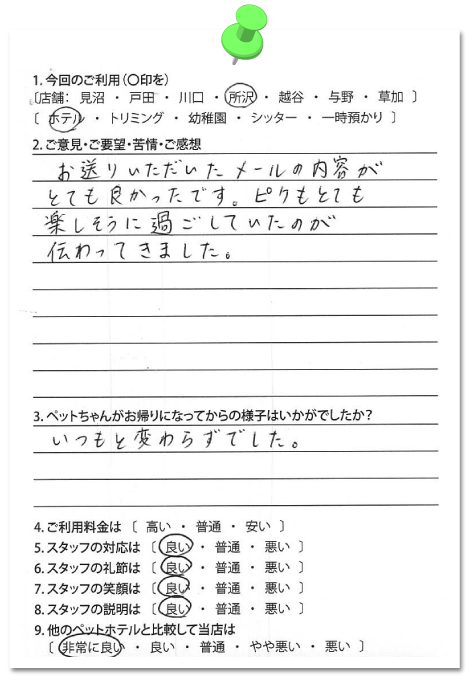 1. 今回のご利用(〇印を)
〔店舗: 見沼 ・ 戸田 ・ 川口 ・ 所沢 ・ 越谷 ・ 与野 ・ 草加 〕
〔 ホテル ・ トリミング ・ 幼稚園 ・ シッター ・ 一時預かり 〕
2. ご意見・ご要望・苦情・ご感想
お送りいただいたメールの内容が
とても良かったです。ピクもとても
楽しそうに過ごしていたのが
伝わってきました。
3. ペットちゃんがお帰りになってからの様子はいかがでしたか?
いつもと変わらずでした。
4. ご利用料金は 〔 高い ・ 普通 ・ 安い 〕
5. スタッフの対応は 〔 良い ・ 普通 ・ 悪い 〕
6. スタッフの礼節は 〔 良い ・ 普通 ・ 悪い 〕
7. スタッフの笑顔は 〔 良い ・ 普通 ・ 悪い 〕
8. スタッフの説明は 〔 良い ・ 普通 ・ 悪い 〕
9. 他のペットホテルと比較して当店は
〔 非常に良い ・ 良い ・ 普通 ・ やや悪い ・ 悪い 〕